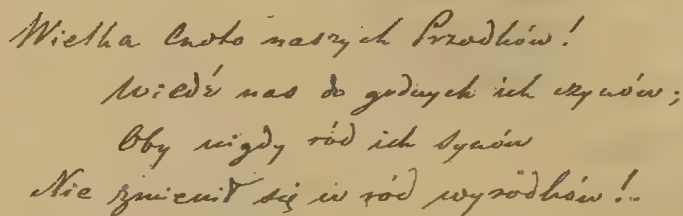 Wielka Cnoto naszych Przodków!
Wiedź nas do godnych ich czynów;
Oby nigdy ród ich synów
Nie zmienił się w ród wyrodków!..